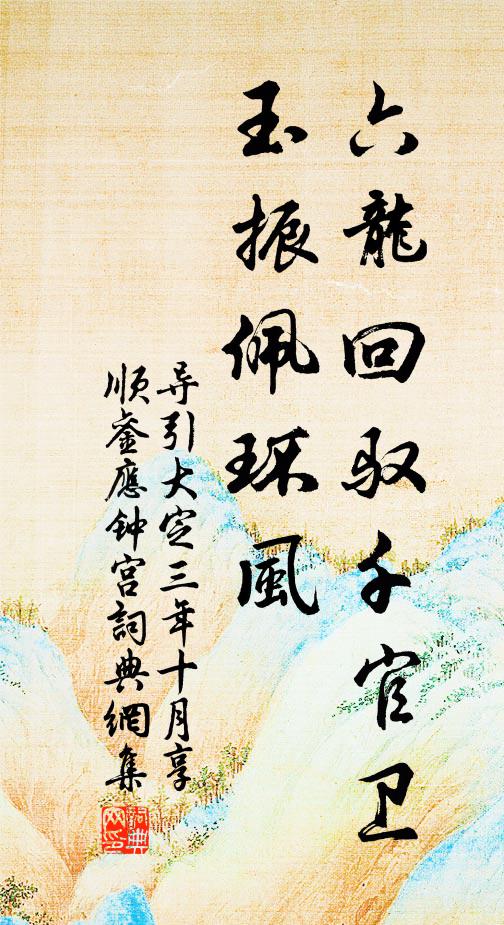 六龍回驭千官卫
玉振佩环風
导引大定三年十月享
顺銮應钟宫詞典網集
詞典網印